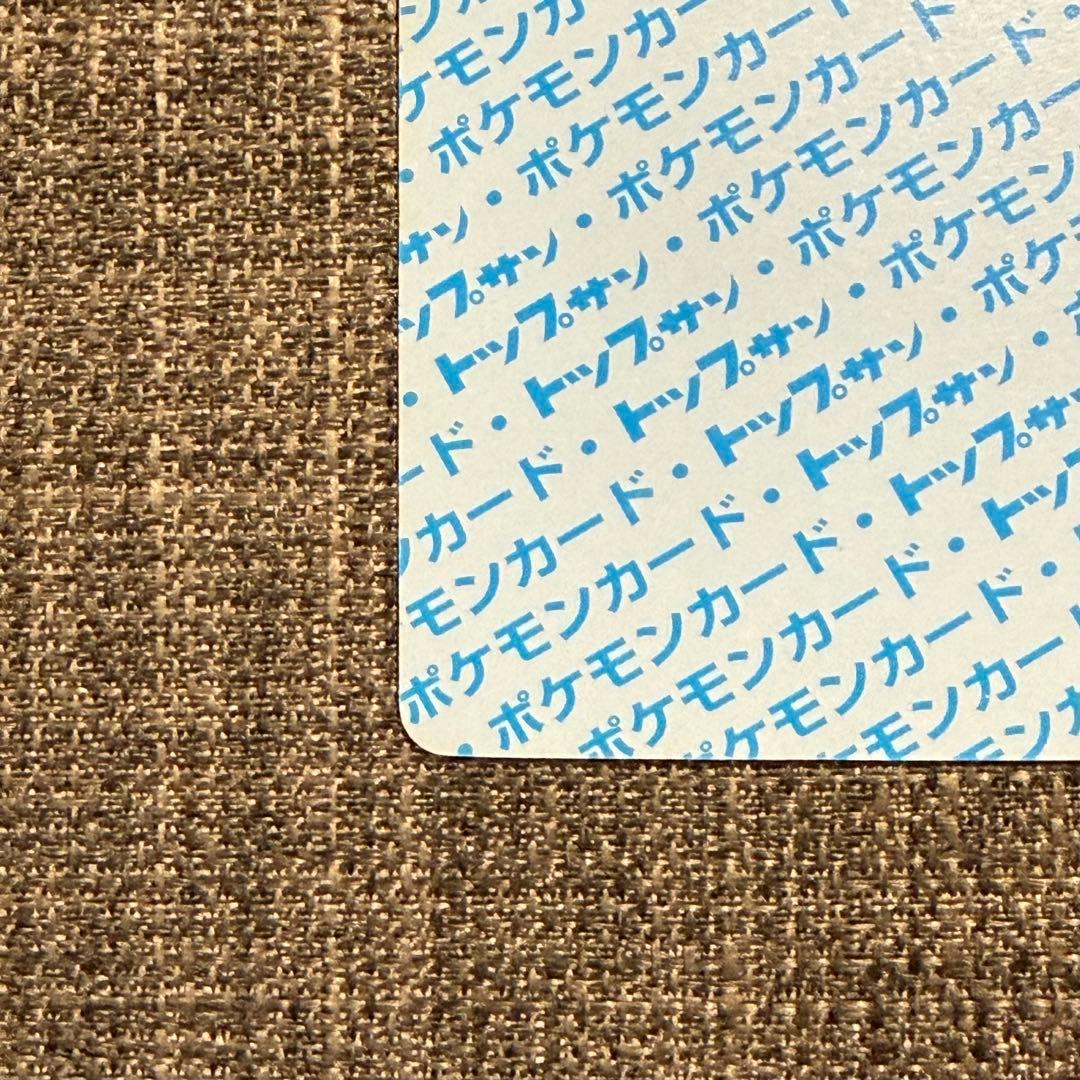 ケモンカ
・ポケモンカ
サン・ポケモンカー
ップサン・ポケモンカード
・トップサン・ポケモンカード・
ード・トップサン・ポケモンカー
ンカード・トップサン・ポケモン
モンカード・トップサン・ポケ
ポケモンカード・トップサン・
・ポケモンカード・トップサ
ポケモンカード・トッ
ケモンカード・
モンカー
ンカ